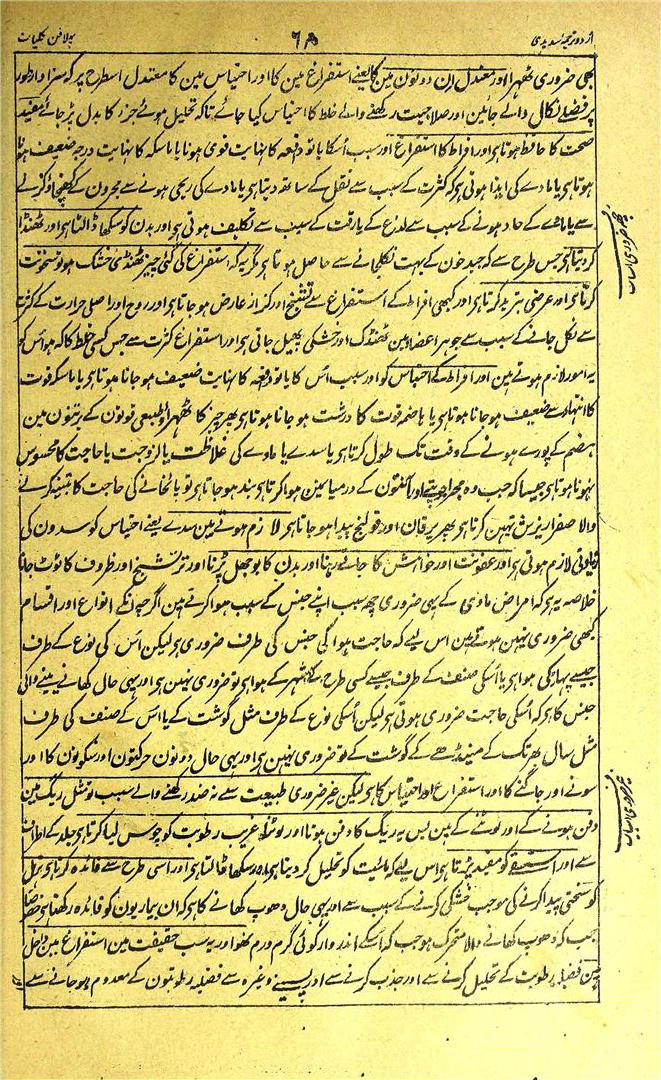 اردو ترجمہ سدیدی ۶۸ پہلا فن کلیات
بھی ضروری ٹھہرا اور معتدل ان دونون مین کا یعنے استفراغ مین کا اور احتباس مین کا معتدل اسطرح پر کہ سزاوار طور
پر فضلے نکال دالے جاین اور صلاحیت رکھنے والے خلط کا احتباس کیا جائے تاکہ تحلیل ہوئے جزر کا بدل پڑ جائے مفید
صحت کا حافظ ہوتا ہی اور افراط کا استفراغ اور سبب اُسکا یا تو دفعہ کا نہایت قوی ہونا یا ماسکہ کا نہایت درجہ ضعیف ہونا
ہوتا ہی یا مادے کی ایذا ہوتی ہی کہ کثرت کے سبب سے ثقل کے ساتھ دیتا ہی یا مادے کی ریحی ہونے سے مجرون کے کھنچاؤ کرنے
سے یا مادے کے حاد ہونے کے سبب سے لذع کے یا رقت کے سبب سے تکلیف ہوتی ہی اور بدن کو سکھا ڈالتا ہی اور ٹھنڈا
کر دیتا ہی جس طرح سے کہ جید خون کے بہت نکلجانے سے حاصل ہوتا ہی مگر یہ کہ استفراغ کی گئی چیز ٹھنڈی خشک ہو تو سخونت
کرتا ہی اور عرضی تر بدن کرتا ہی اور کبھی افراط کے استفراغ سے تشنج اور کزاز عارض ہو جاتا ہی اور روح اور اصلی حرارت کے کثرت
سے نکل جانے کے سبب سے جوہر اعضا مین ٹھنڈک اور خشکی پھیل جاتی ہی اور استفراغ کثرت سے جس کسی خلط کا کہ ہو اُس کو
یہ امور لازم ہوتے ہین اور افراط کے احتباس کو اور سبب اس کا یا تو دفعہ کا نہایت ضعیف ہو جانا ہوتا ہی یا ماسکہ قوت
کا انتہا سے ضعیف ہو جانا ہوتا ہی یا ہاضمہ قوت کا درشت ہو جانا ہوتا ہی پھر چیز کا ٹھہراؤ طبیعی قوتون کے برتنون مین
ہضم کے پورے ہونے کے وقت تک طول کرتا ہی یا سدے یا مادے کی غلاظت یا لزوجت یا حاجت کا محسوس
نہونا ہوتا ہی جیسا کہ جب وہ مجرا جو پتے اور آنتون کے درمیا مین ہوا کرتا ہی بند ہو جاتا ہی تو پائخانے کی حاجت کا متنبہ کرنے
والا صفرا ریزش نہین کرتا ہی پھر یرقان اور قولنج پیدا ہو جاتا ہی لازم ہوتے ہین سدے یعنے احتباس کو سدون کی
زیادتی لازم ہوتی ہی اور عفونت اور خواہش کا جاتے رہنا اور بدن کا بوجھل پڑنا اور تر تشنج اور ظروف کا ٹوٹ جانا
خلاصہ یہ ہی کہ امراض مادی کے یہی ضروری چھ سبب اپنے جنس کے سبب ہوا کرتے ہین اگرچہ انکے انواع اور اقسام
کبھی ضروری نہین ہوتے ہین اس لیے کہ حاجت ہوا کی جنس کی طرف ضروری ہی لیکن اُس کی نوع کے طرف
جیسے پہاڑ کی ہوا ہی یا اُسکی صنف کے طرف جیسے کسی طرح کے شہر کے ہوا ہی تو ضروری نہین ہی اور یہی حال کھانے پینے والی
جنس کا ہی کہ اُسکی حاجت ضروری ہوتی ہی لیکن اُسکی نوع کے طرف مثل گوشت کے یا اس کے صنف کی طرف
مثل سال بھر تک کے مینڈھے کے گوشت کے تو ضروری نہین ہی اور یہی حال دونون حرکتون اور سکونون کا اور
سونے اور جاگنے کا اور استفراغ اور احتباس کا ہی لیکن غیر ضروری طبیعت سے نہ ضد رکھنے والے سبب تو مثل ریگ مین
دفن ہونے کے اور لوٹنے کے ہین پس یہ ریگ کا دفن ہونا اور لوٹنا غریب رطوبت کو چوس لیا کرتا ہی جلد کے اطراف
سے اور استسقے کو مفید پڑتا ہی اس لیے کہ مائیت کو تحلیل کر دیتا ہی اور سکھا ڈالتا ہی اور اسی طرح سے فائدہ کرتا ہی ترہل
کو سختی پیدا کرنے کی موجب خشکی کرنے کے سبب سے اور یہی حال دھوپ کھانے کا ہی کہ ان بیماریون کو فائدہ رکھتا ہی خصوصا
جب کہ دھوپ کھانے والا متحرک ہو جب کہ اُسکے اندر وار کوئی گرم ورم نہو اور یہ سب حقیقت مین استفراغ مین داخل
ہین فضلہ رطوبت کے تحلیل کرنے سے اور جذب کرنے سے اور پسینے وغیرہ سے فضلیہ رطوبتون کے معدوم ہو جانے سے